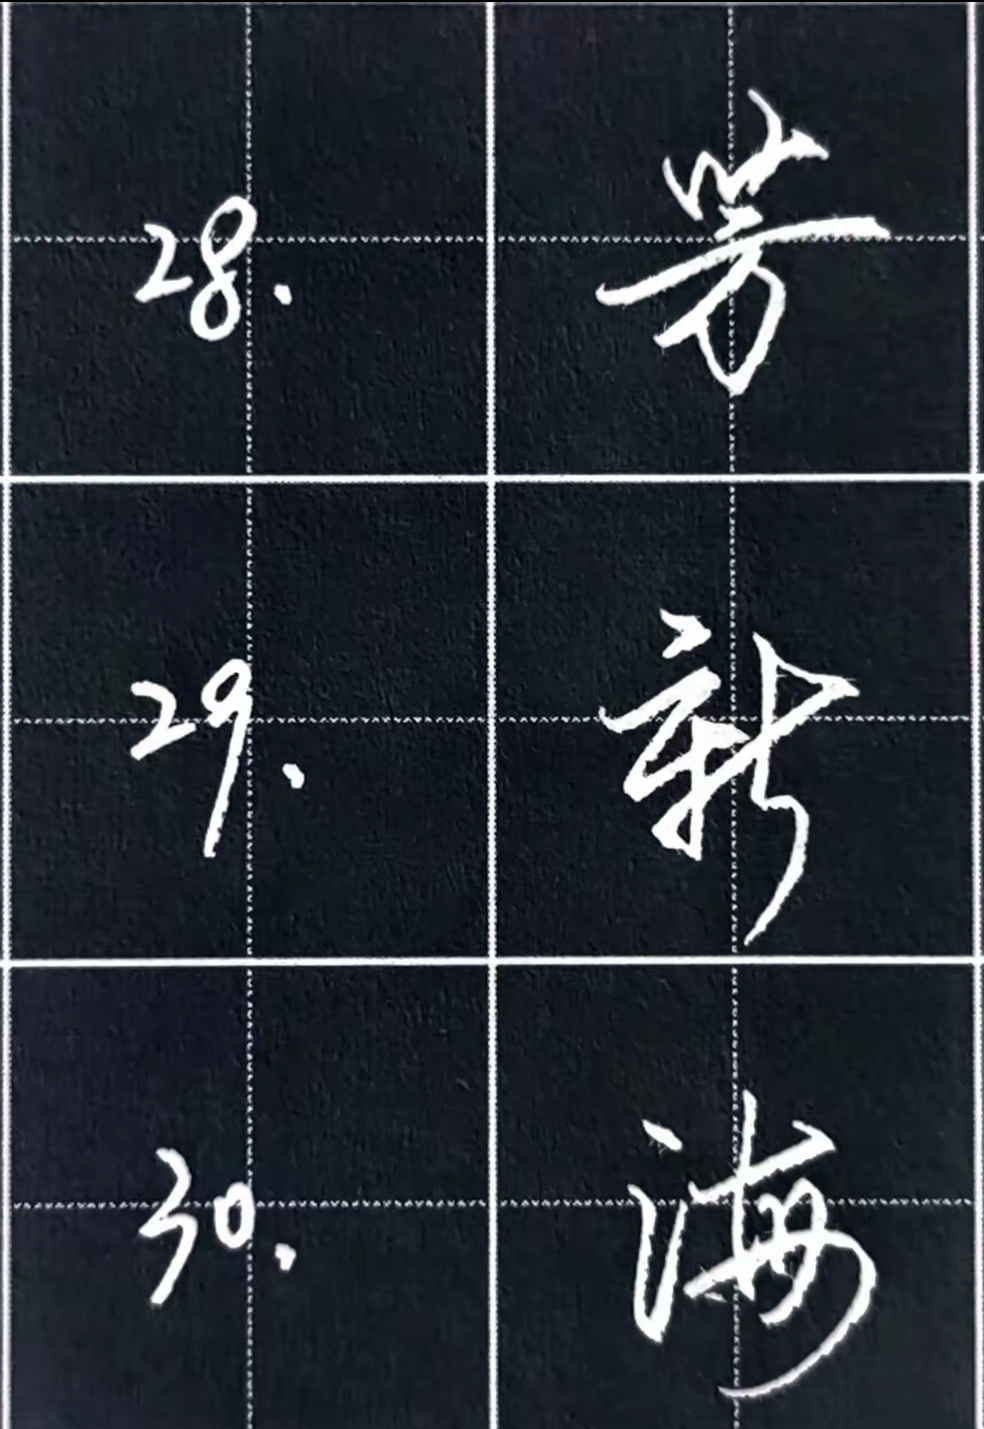 28. 芳
29. 新
30. 海